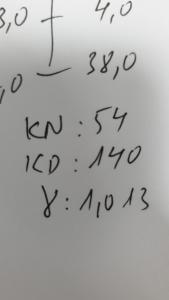 3,0 4,0
,0 — 38,0
KN : 54
KD : 140
γ : 1,013